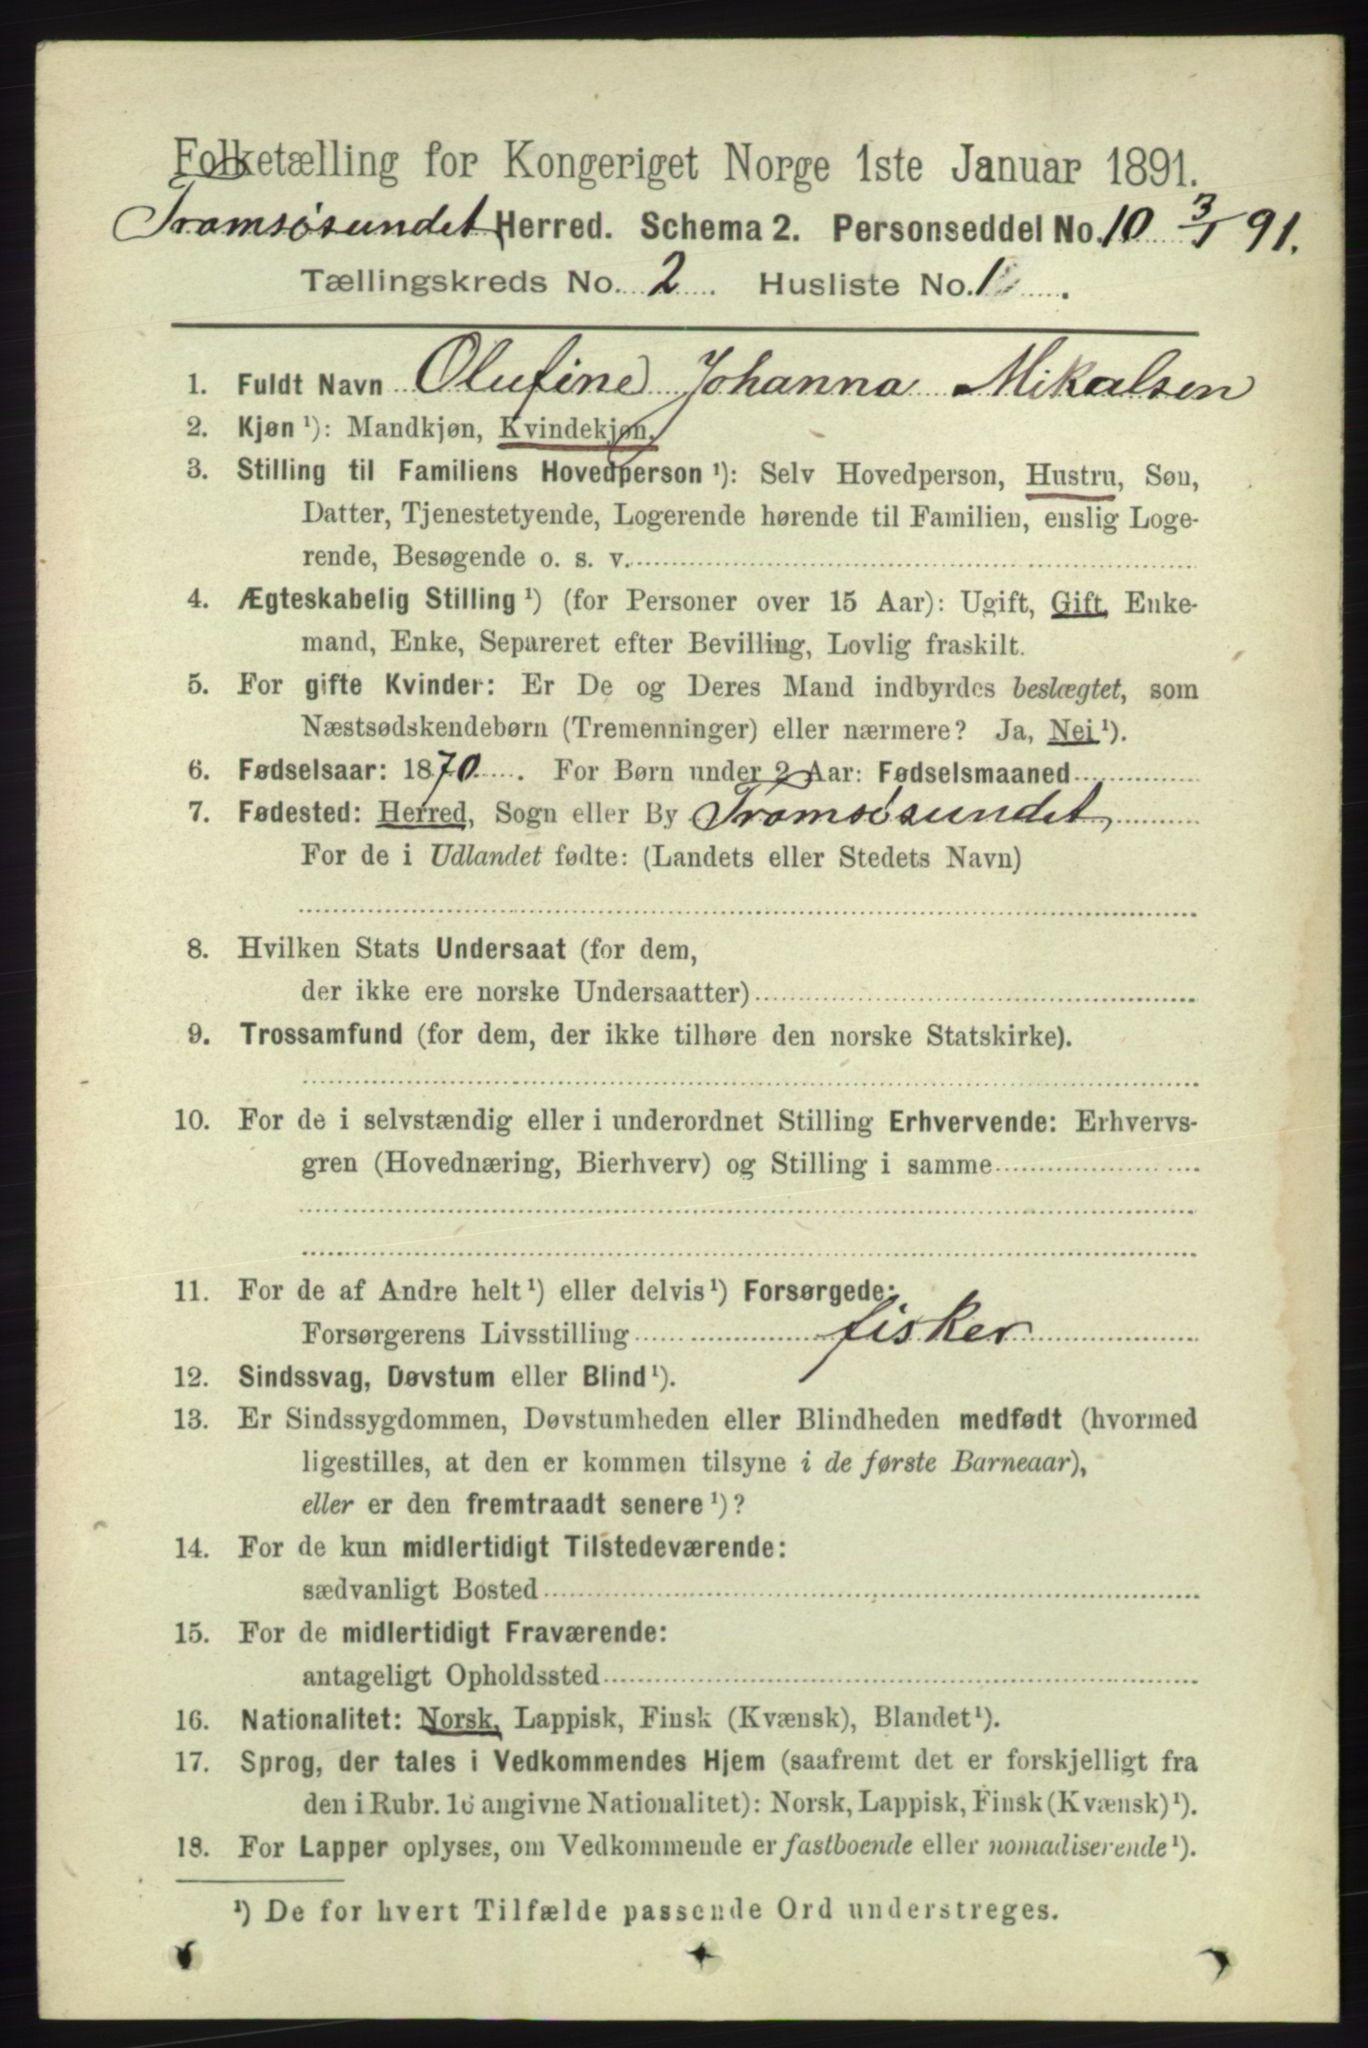 Folketælling for Kongeriget Norge 1ste Januar 1891.
Tromsøsundet Herred. Schema 2. Personseddel No. 10 3/1 91.
Tællingskreds No. 2 Husliste No. 1
1. Fuldt Navn Olufine Johanna Mikalsen
2. Kjøn ¹): Mandkjøn, Kvindekjøn.
3. Stilling til Familiens Hovedperson ¹): Selv Hovedperson, Hustru, Søn,
Datter, Tjenestetyende, Logerende hørende til Familien, enslig Loge-
rende, Besøgende o. s. v.
4. Ægteskabelig Stilling ¹) (for Personer over 15 Aar): Ugift, Gift, Enke-
mand, Enke, Separeret efter Bevilling, Lovlig fraskilt.
5. For gifte Kvinder: Er De og Deres Mand indbyrdes beslægtet, som
Næstsødskendebørn (Tremenninger) eller nærmere? Ja, Nei ¹).
6. Fødselsaar: 1870. For Børn under 2 Aar: Fødselsmaaned
7. Fødested: Herred, Sogn eller By Tromsøsundet
For de i Udlandet fødte: (Landets eller Stedets Navn)
8. Hvilken Stats Undersaat (for dem,
der ikke ere norske Undersaatter)
9. Trossamfund (for dem, der ikke tilhøre den norske Statskirke).
10. For de i selvstændig eller i underordnet Stilling Erhvervende: Erhvervs-
gren (Hovednæring, Bierhverv) og Stilling i samme
11. For de af Andre helt ¹) eller delvis ¹) Forsørgede:
Forsørgerens Livsstilling fisker
12. Sindssvag, Døvstum eller Blind ¹).
13. Er Sindssygdommen, Døvstumheden eller Blindheden medfødt (hvormed
ligestilles, at den er kommen tilsyne i de første Barneaar),
eller er den fremtraadt senere ¹)?
14. For de kun midlertidigt Tilstedeværende:
sædvanligt Bosted
15. For de midlertidigt Fraværende:
antageligt Opholdssted
16. Nationalitet: Norsk, Lappisk, Finsk (Kvænsk), Blandet ¹).
17. Sprog, der tales i Vedkommendes Hjem (saafremt det er forskjelligt fra
den i Rubr. 16 angivne Nationalitet): Norsk, Lappisk, Finsk (Kvænsk) ¹).
18. For Lapper oplyses, om Vedkommende er fastboende eller nomadiserende ¹).
¹) De for hvert Tilfælde passende Ord understreges.